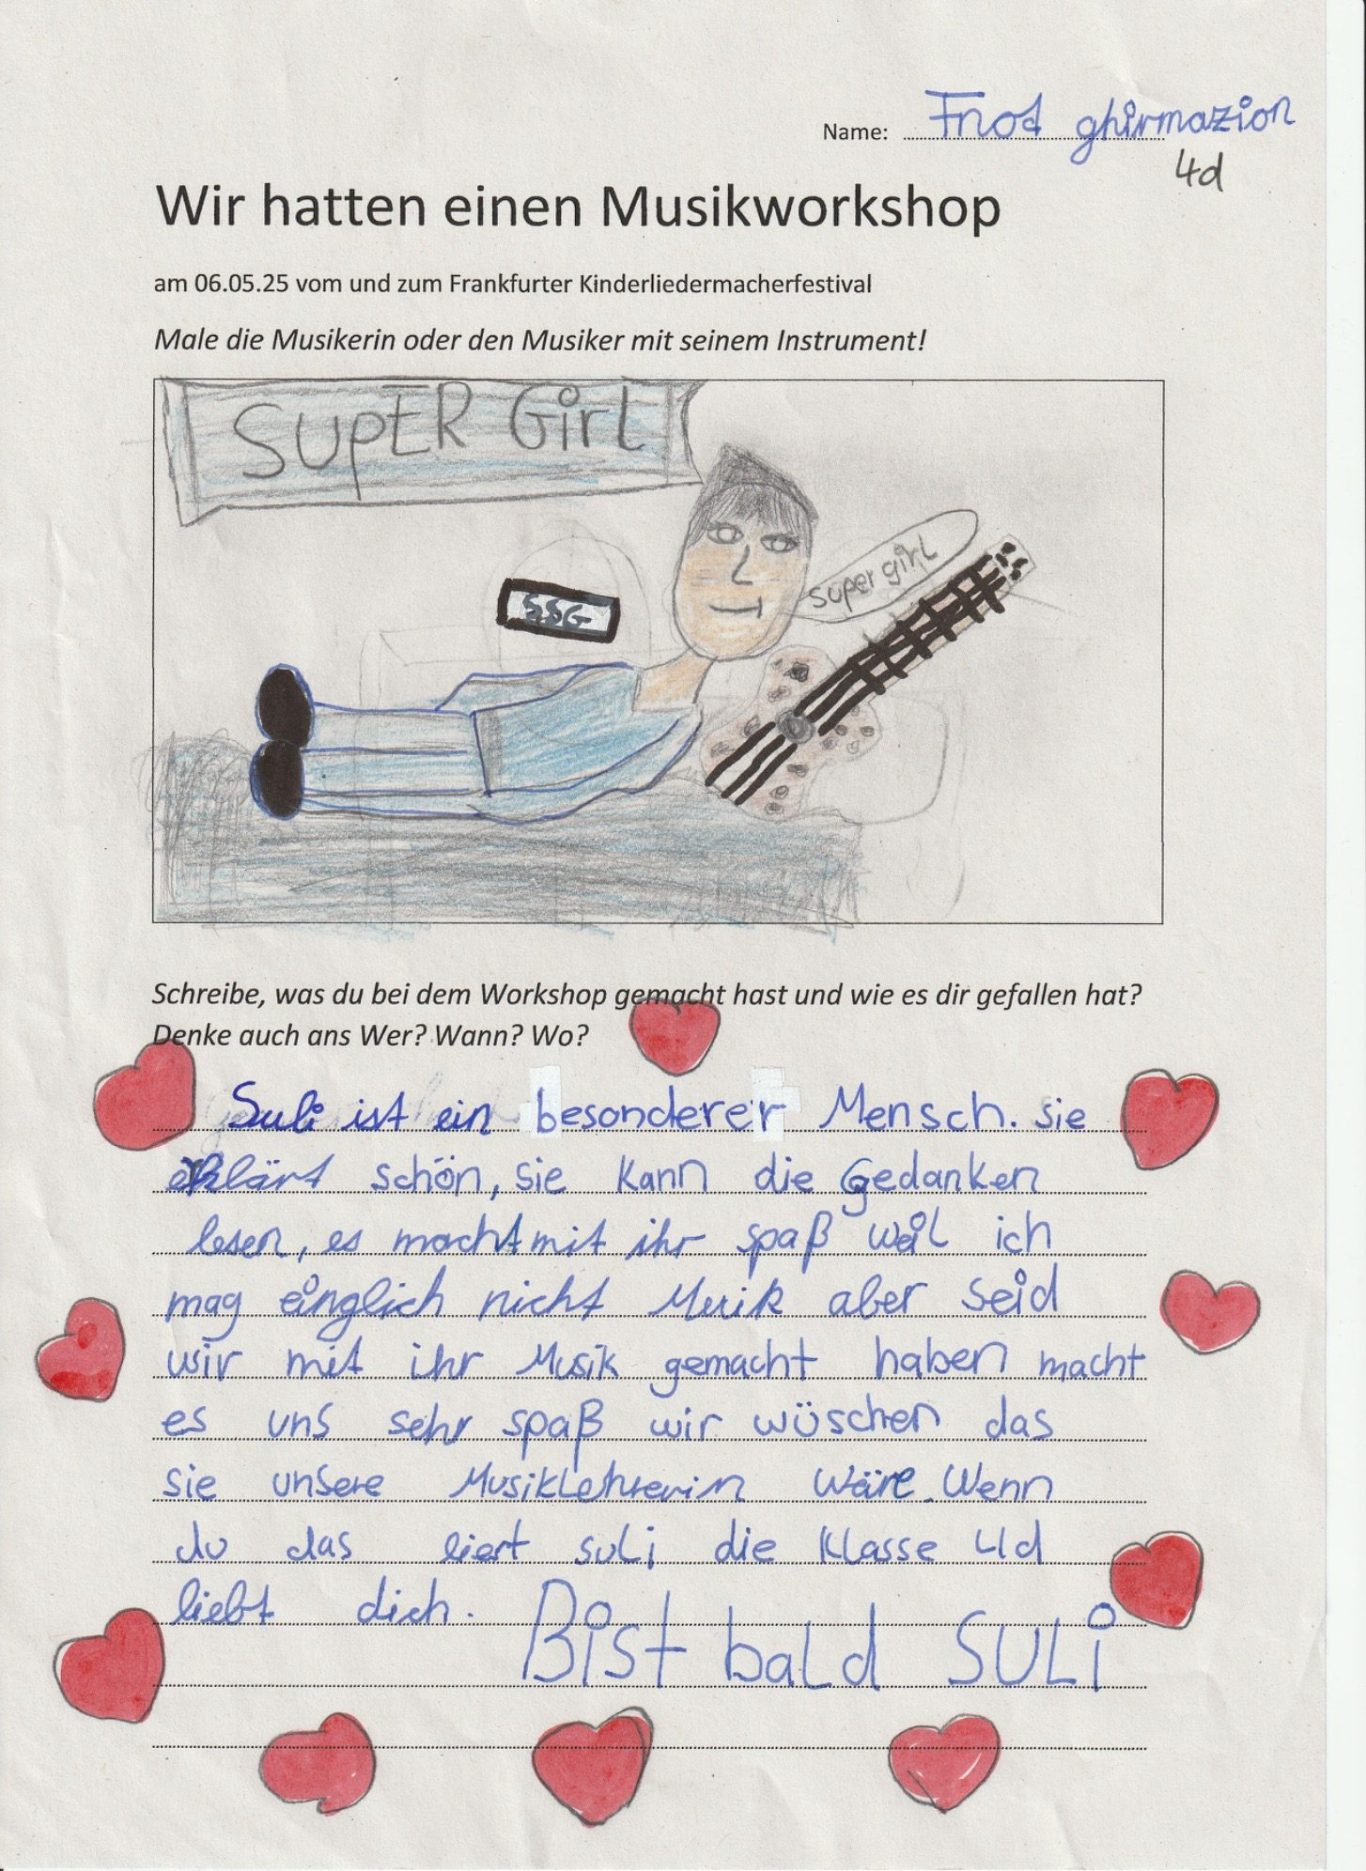 Name: Fnot ghirmazion
4d
Wir hatten einen Musikworkshop
am 06.05.25 vom und zum Frankfurter Kinderliedermacherfestival
Male die Musikerin oder den Musiker mit seinem Instrument!
SUpER Girl
super girl
SSG
Schreibe, was du bei dem Workshop gemacht hast und wie es dir gefallen hat?
Denke auch ans Wer? Wann? Wo?
Suli ist ein besonderer Mensch. sie
erklärt schön, sie kann die Gedanken
lesen, es macht mit ihr spaß weil ich
mag einglich nicht Musik aber seid
wir mit ihr Musik gemacht haben macht
es uns sehr spaß wir wüschen das
sie unsere Musiklehrerin wäre. Wenn
du das liest suli die Klasse 4d
liebt dich. Bist bald SULi